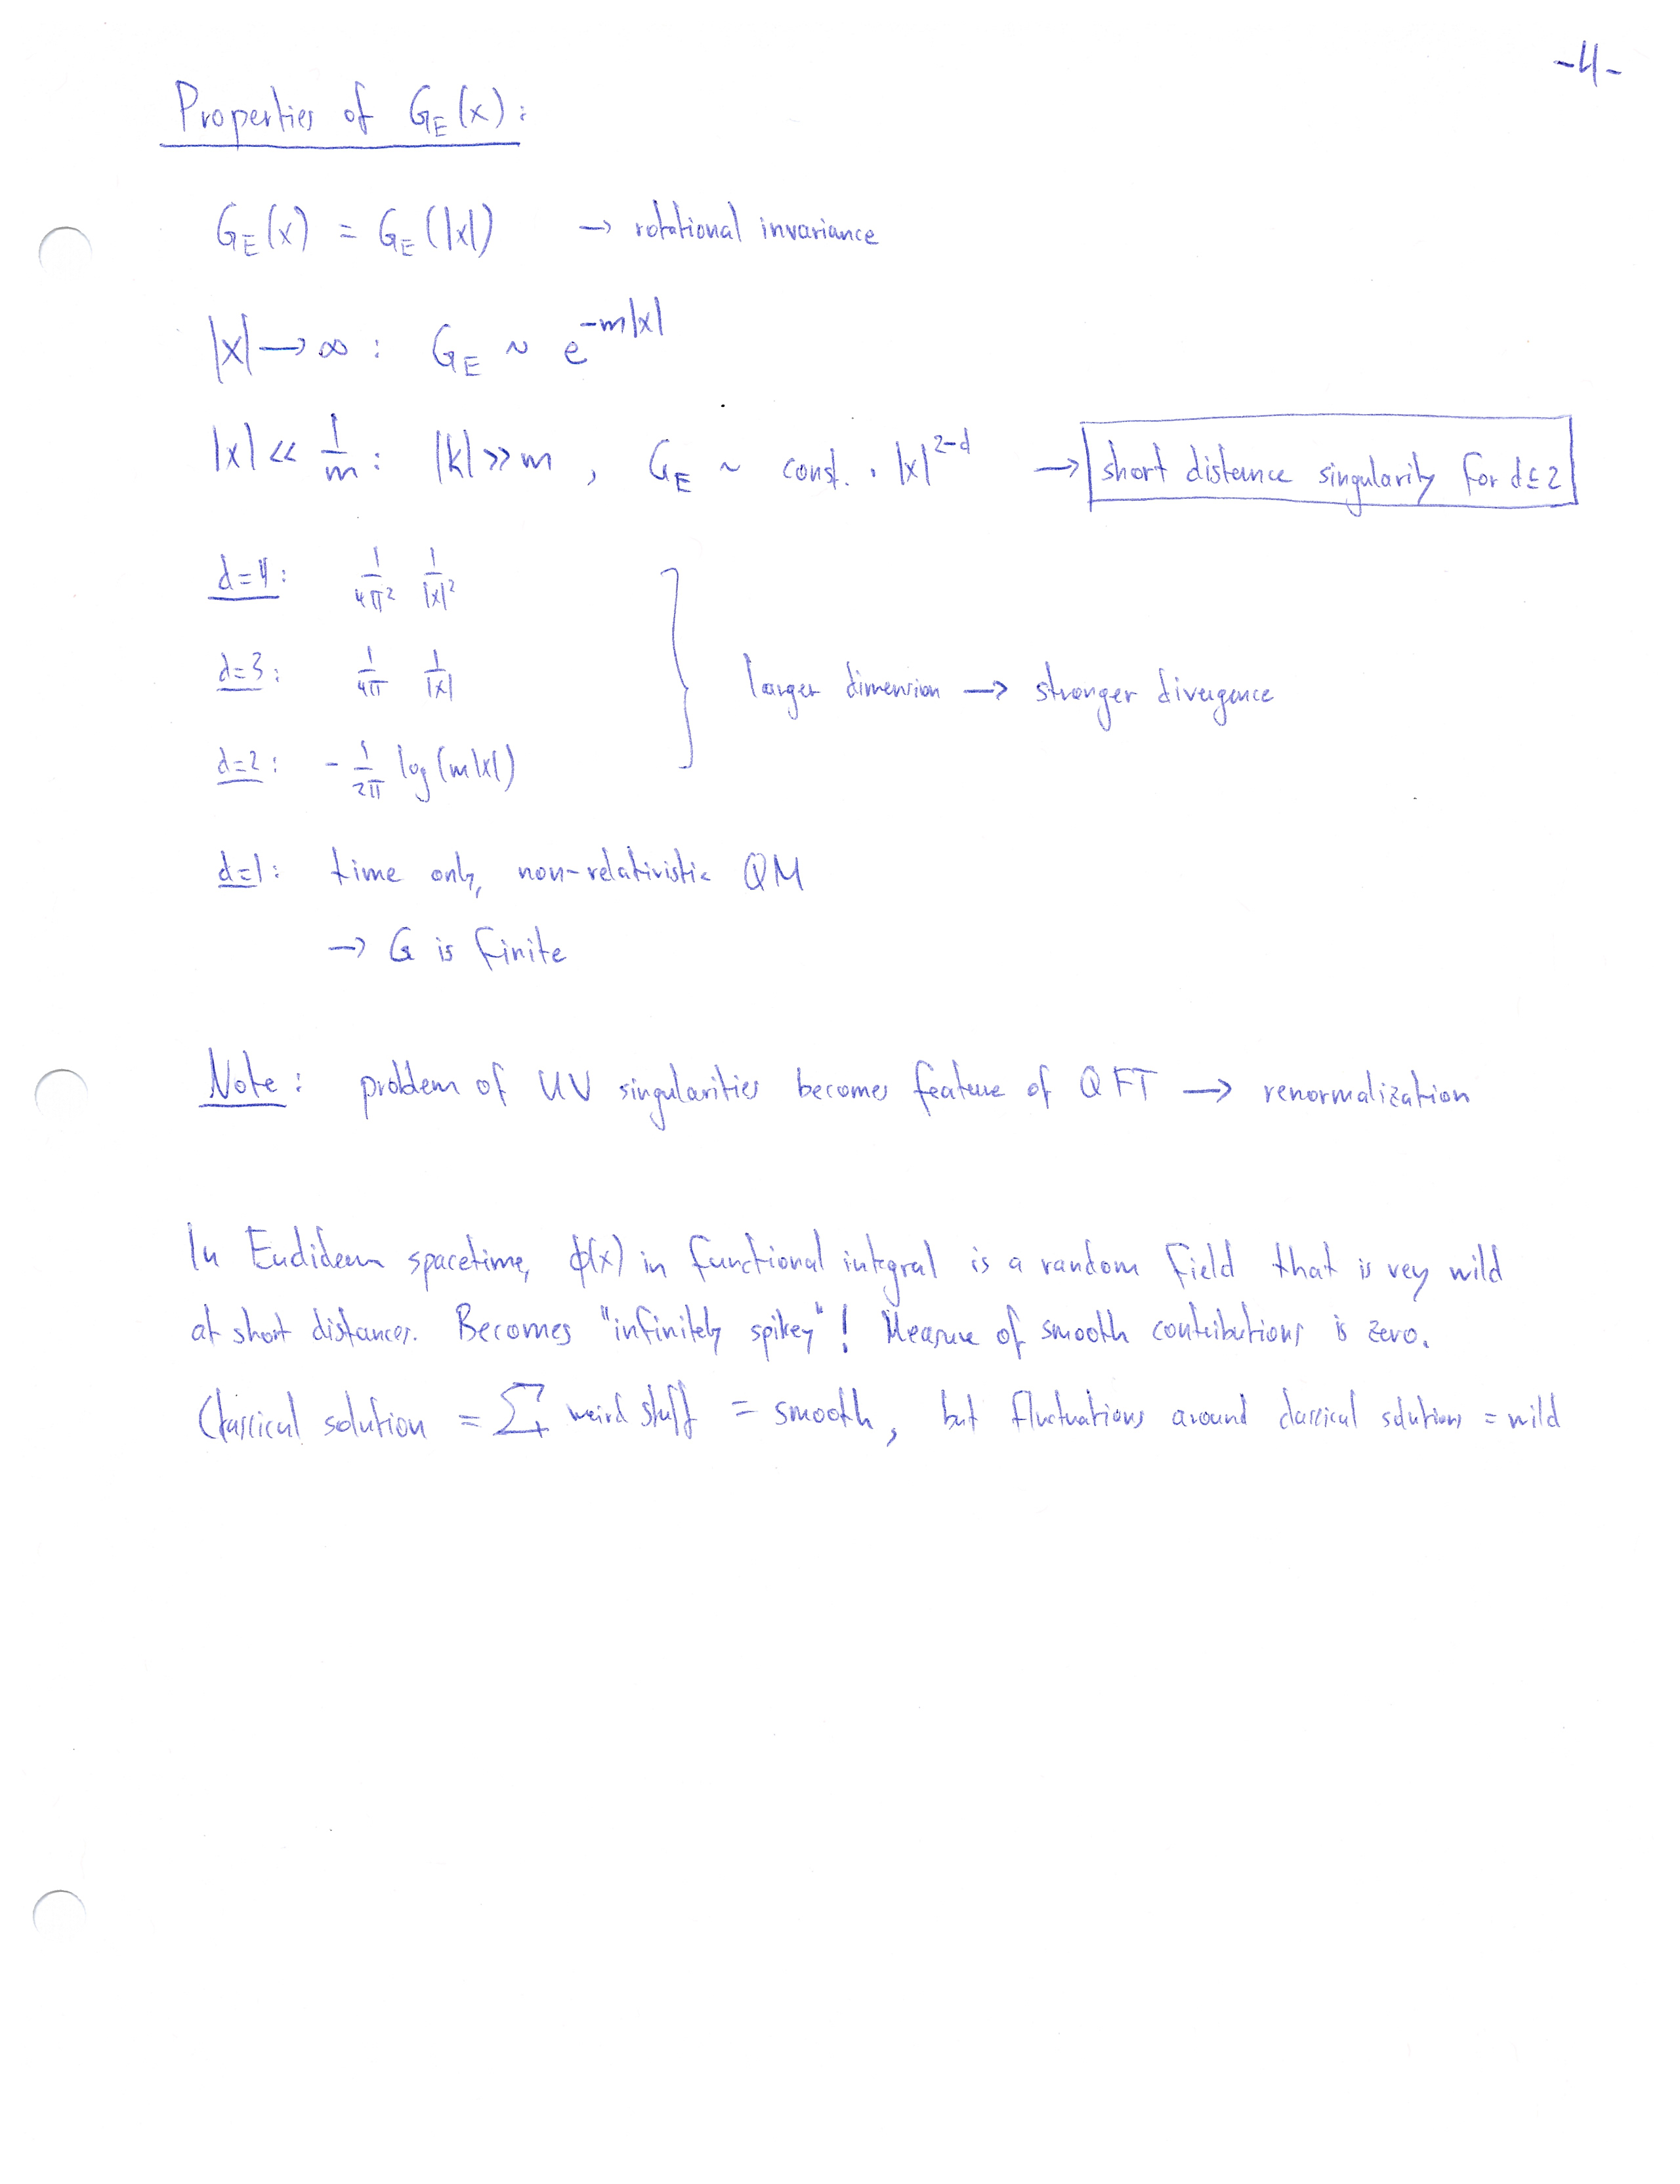 -4-
Properties of G_E(x):
G_E(x) = G_E(|x|) → rotational invariance
|x| → ∞ : G_E ~ e^{-m|x|}
|x| << 1/m : |k| >> m , G_E ~ const. · |x|^{2-d} → short distance singularity for d≤2
d=4: 1/4π² 1/|x|²
d=3: 1/4π 1/|x|
larger dimension → stronger divergence
d=2: - 1/2π log(m|x|)
d=1: time only, non-relativistic QM
→ G is finite
Note: problem of UV singularities becomes feature of QFT → renormalization
In Euclidean spacetime, ϕ(x) in functional integral is a random field that is very wild
at short distances. Becomes "infinitely spikey"! Measure of smooth contributions is zero.
Classical solution = Σ weird stuff = smooth, but fluctuations around classical solutions = wild